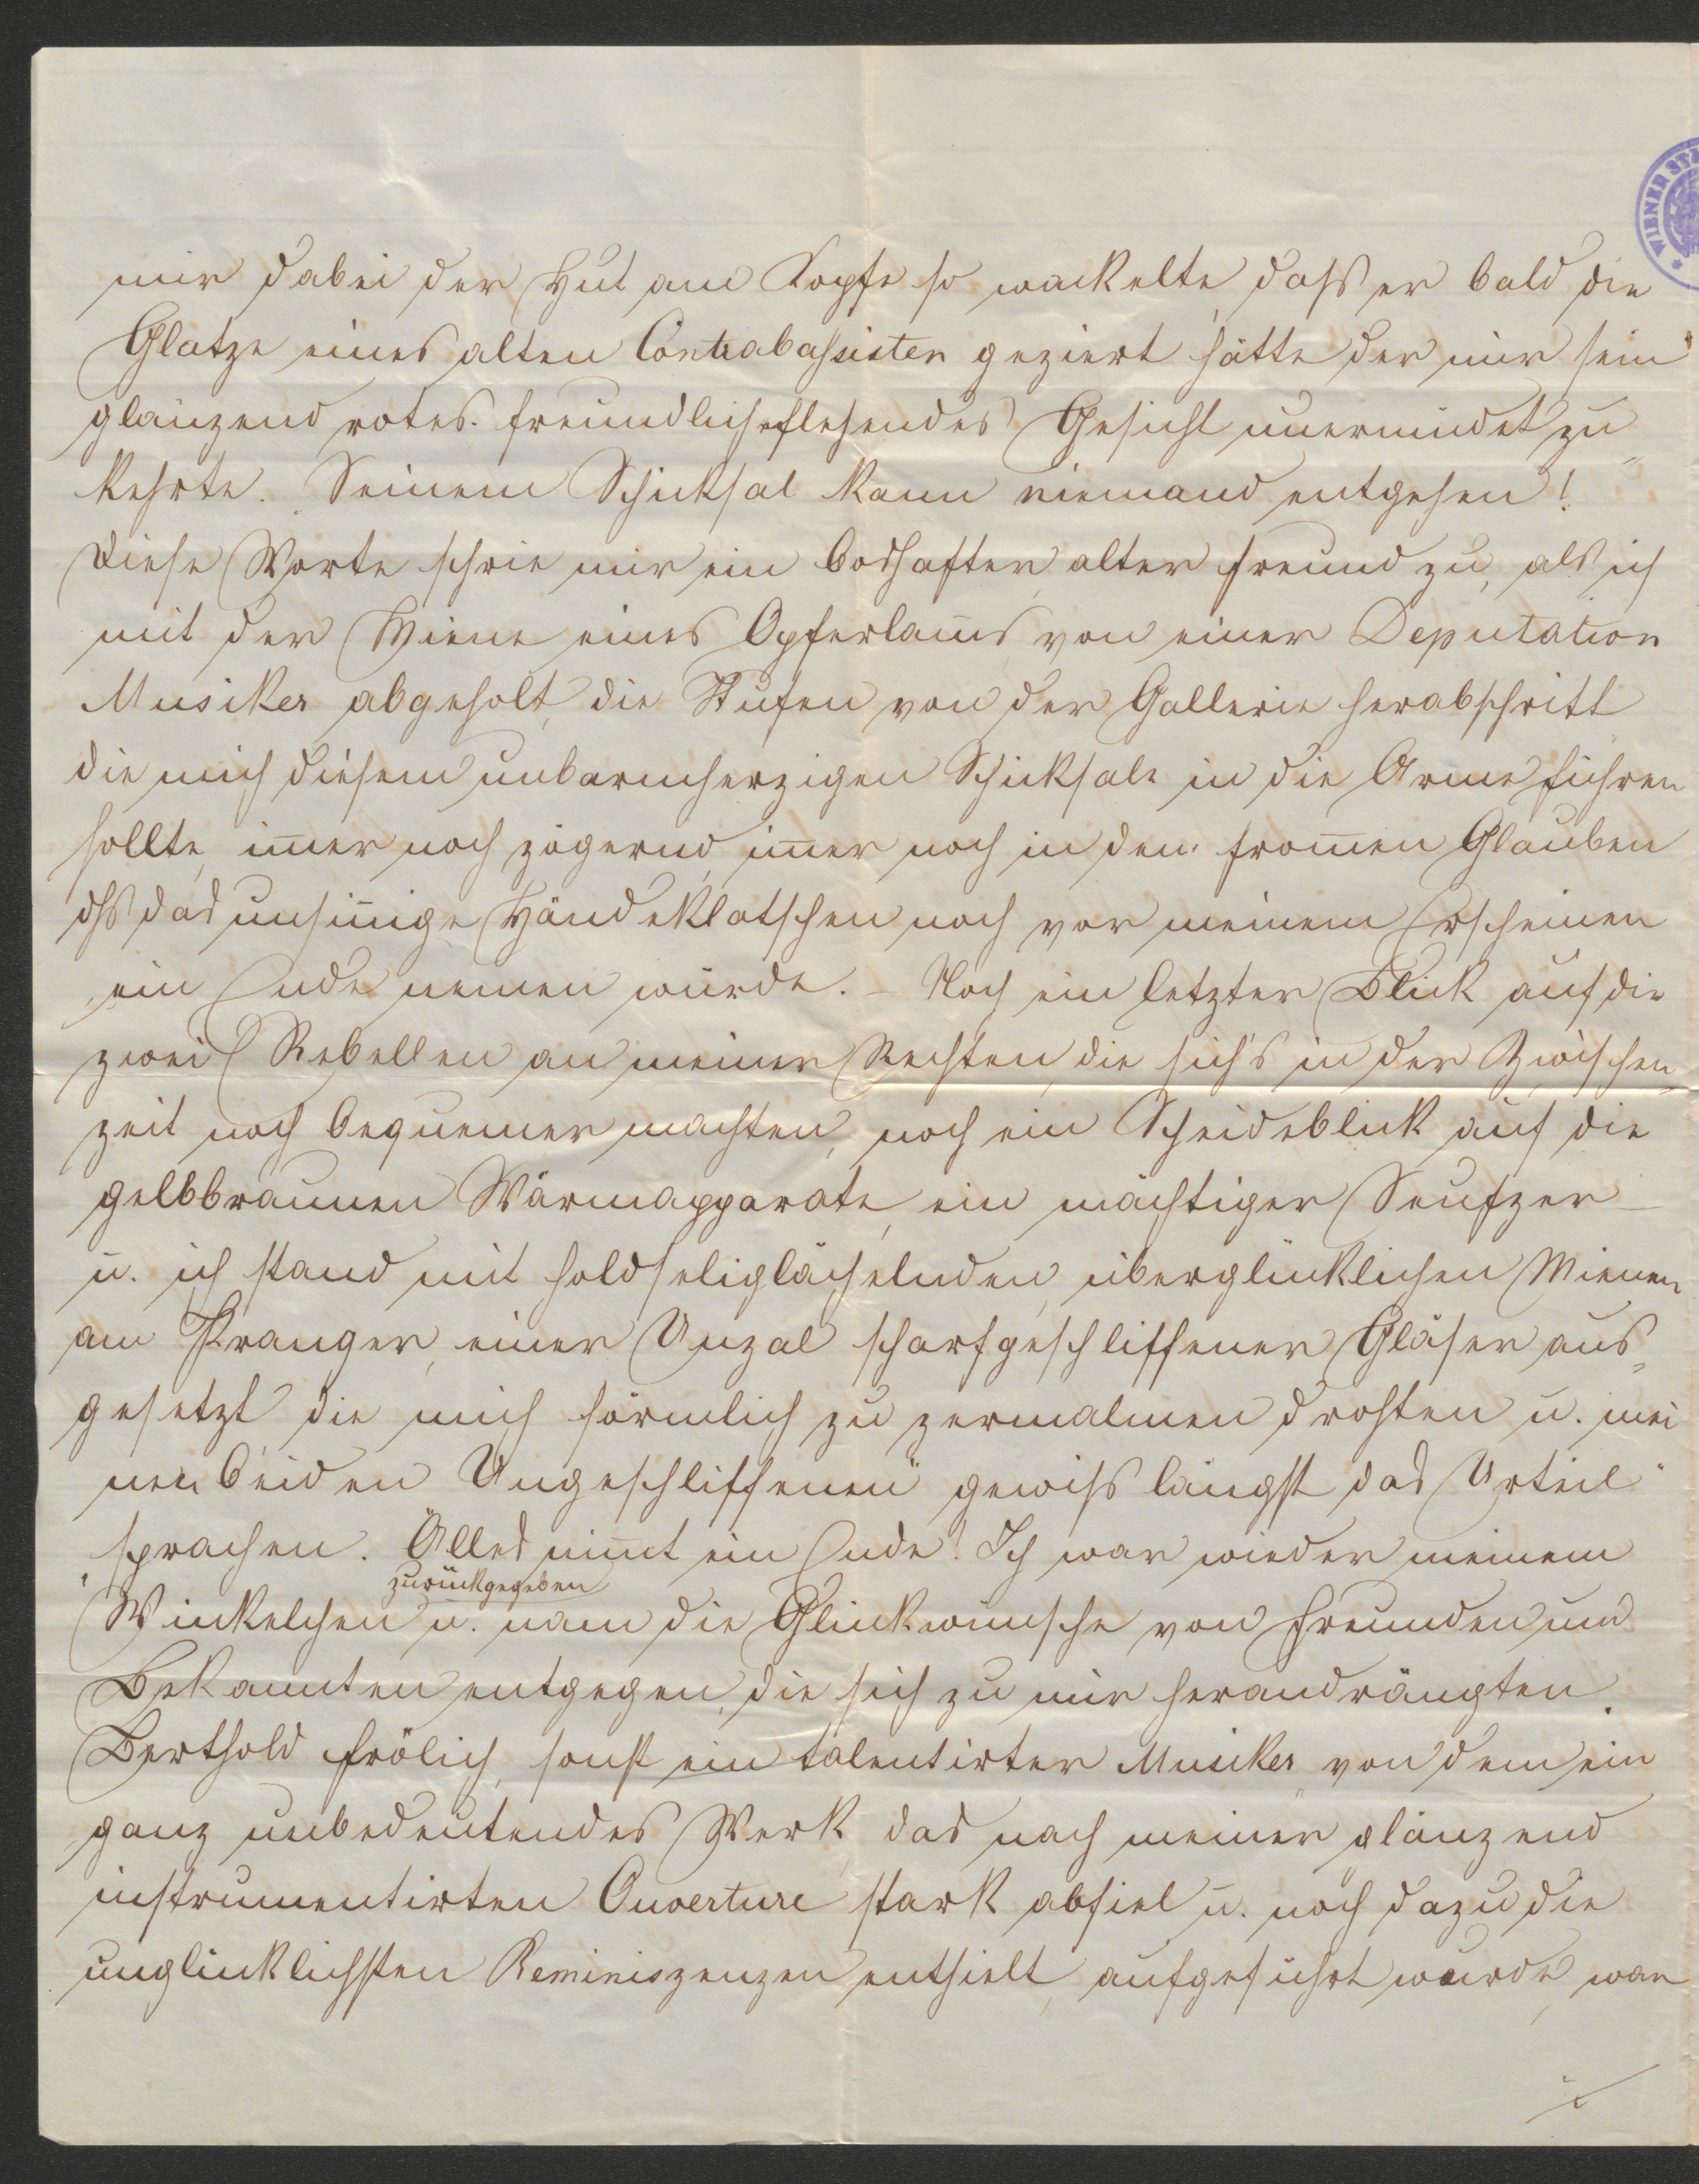 mir dabei der Hut am Kopfe so wackelte, daſs er bald die
Glatze eines alten Contrabaſsisten geziert hätte der mir sein
glänzend rotes freundlichflehendes Gesicht unermüdet zu
kehrte. Seinem Schicksal kann niemand entgehen!"
Diese Worte schrie mir ein boshafter alter Freund zu, als ich
mit der Miene eines Opferlam̅s von einer Deputation
Musiker abgeholt, die Stufen von der Gallerie herabschritt
die mich diesem unbarmherzigen Schicksale in die Arme führen
sollte, im̅er noch zögernd, im̅er noch in dem from̅en Glauben
dſs das unsin̅ige Händeklatschen noch vor meinem Erscheinen
ein Ende nemen würde. – Noch ein letzter Blick auf die
zwei Rebellen an meiner Rechten, die sich's in der Zwischen„
zeit noch bequemer machten, noch ein Scheideblick auf die
gelbbraunen Wärmapparate, ein mächtiger Seufzer –
u. ich stand mit holdseliglächelnden, überglücklichen Mienen
am Pranger, einer Unzal scharfgeschliffener Gläser aus„
gesetzt die mich förmlich zu zermalmen drohten u. mei
nen beiden Ungeschliffenen" gewiſs längst das Urteil
sprachen. Alles nim̅t ein Ende! Ich war wieder meinem
zurückgegeben
Winkelchen u. nam die Glückwünsche von Freunden und
Bekannten entgegen, die sich zu mir herandrängten.
Berthold Frölich, sonst ein talentirter Musiker, von dem ein
ganz unbedeutendes Werk, das nach meiner glänzend
instrumentirten Ouverture stark abfiel u. noch dazu die
unglücklichsten Reminiszenzen enthielt, aufgeführt wurde, war
WIENER